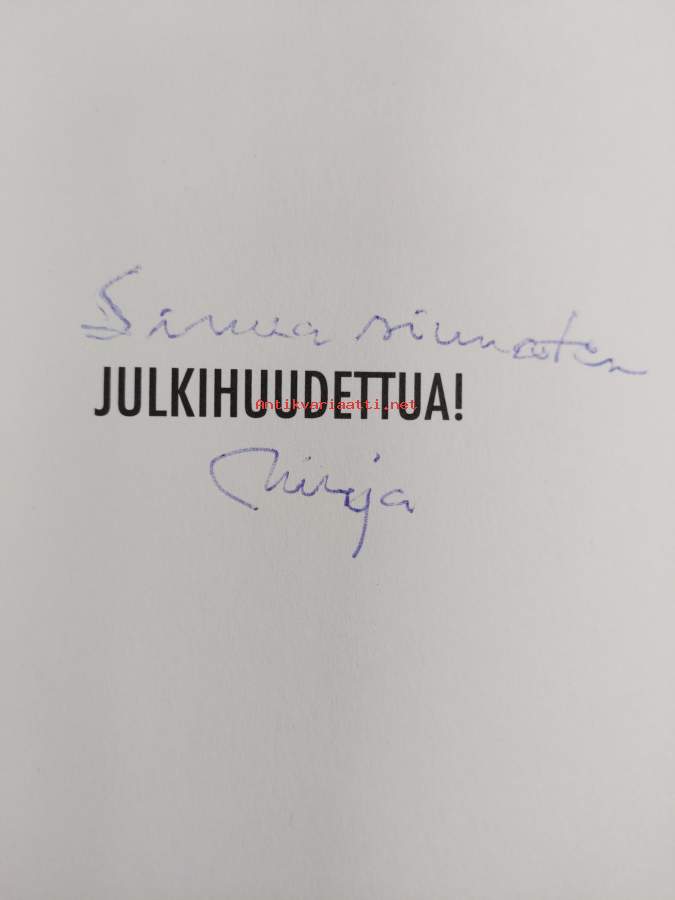 Sinua siunaten
JULKIHUUDETTUA!
Antikvariaatti.net
Mirja